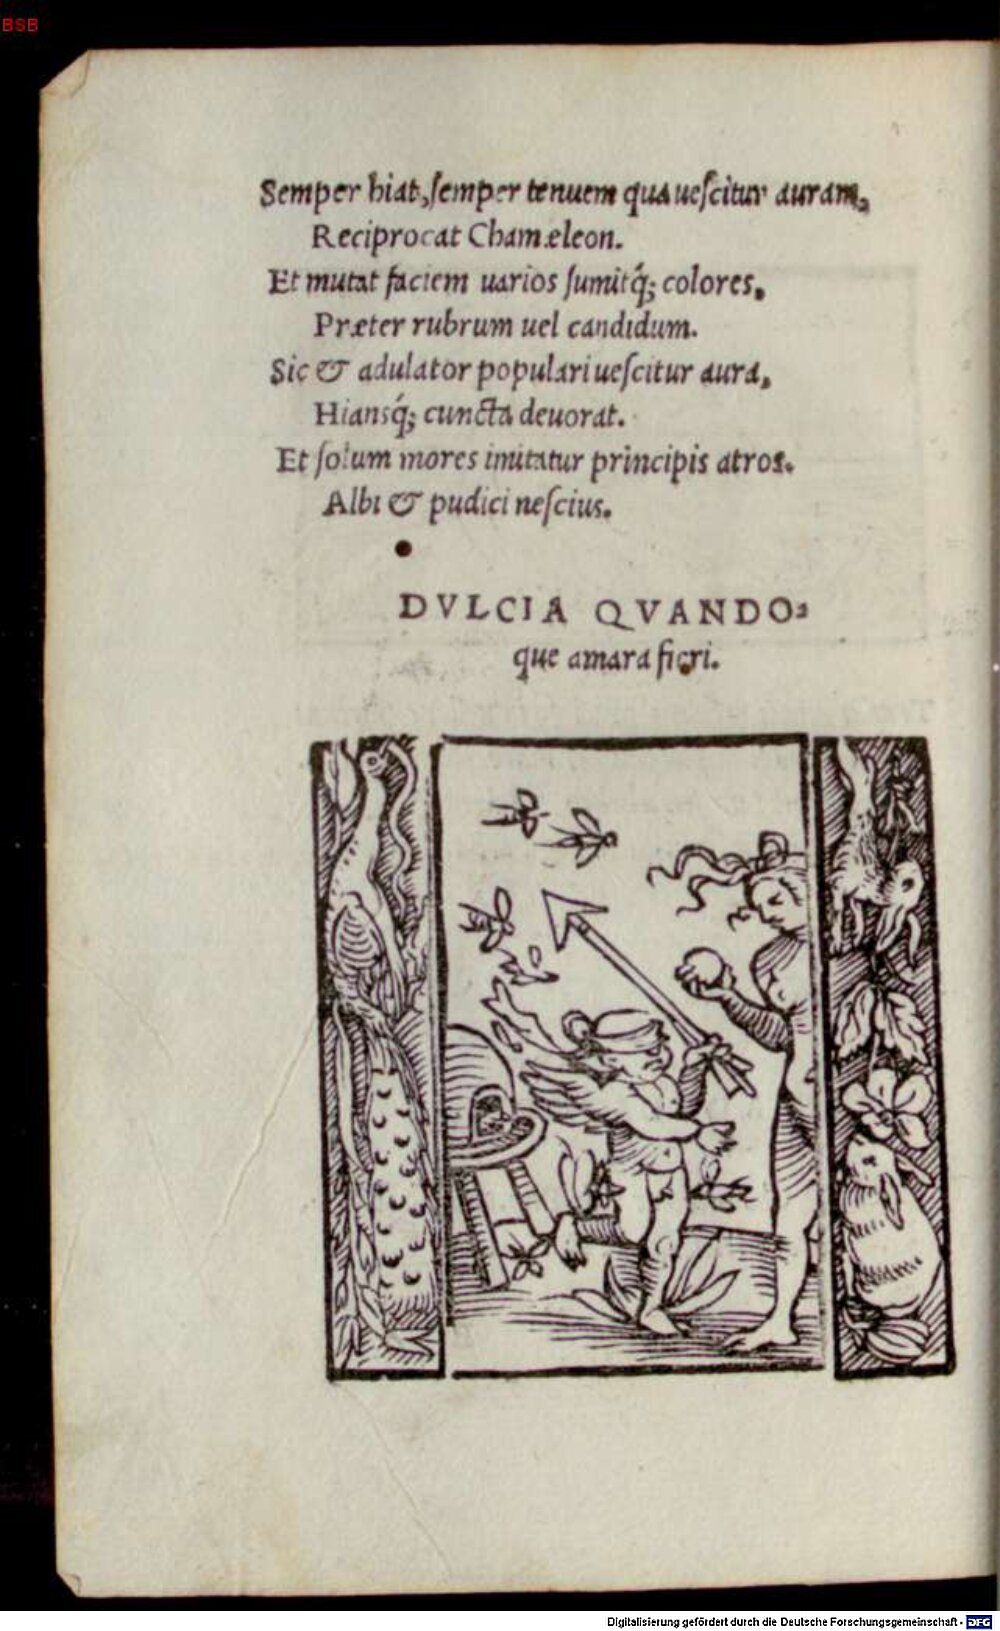 BSB
Semper hiat, ſemper tenuem qua ueſcitur auram,
Reciprocat Chamæleon.
Et mutat faciem uarios ſumitq́; colores,
Præter rubrum uel candidum.
Sic & adulator populari ueſcitur aura,
Hiansq́; cuncta deuorat.
Et ſolum mores imitatur principis atros.
Albi & pudici neſcius.
DVLCIA QVANDO⸗
que amara fieri.
Digitalisierung gefördert durch die Deutsche Forschungsgemeinschaft - DFG